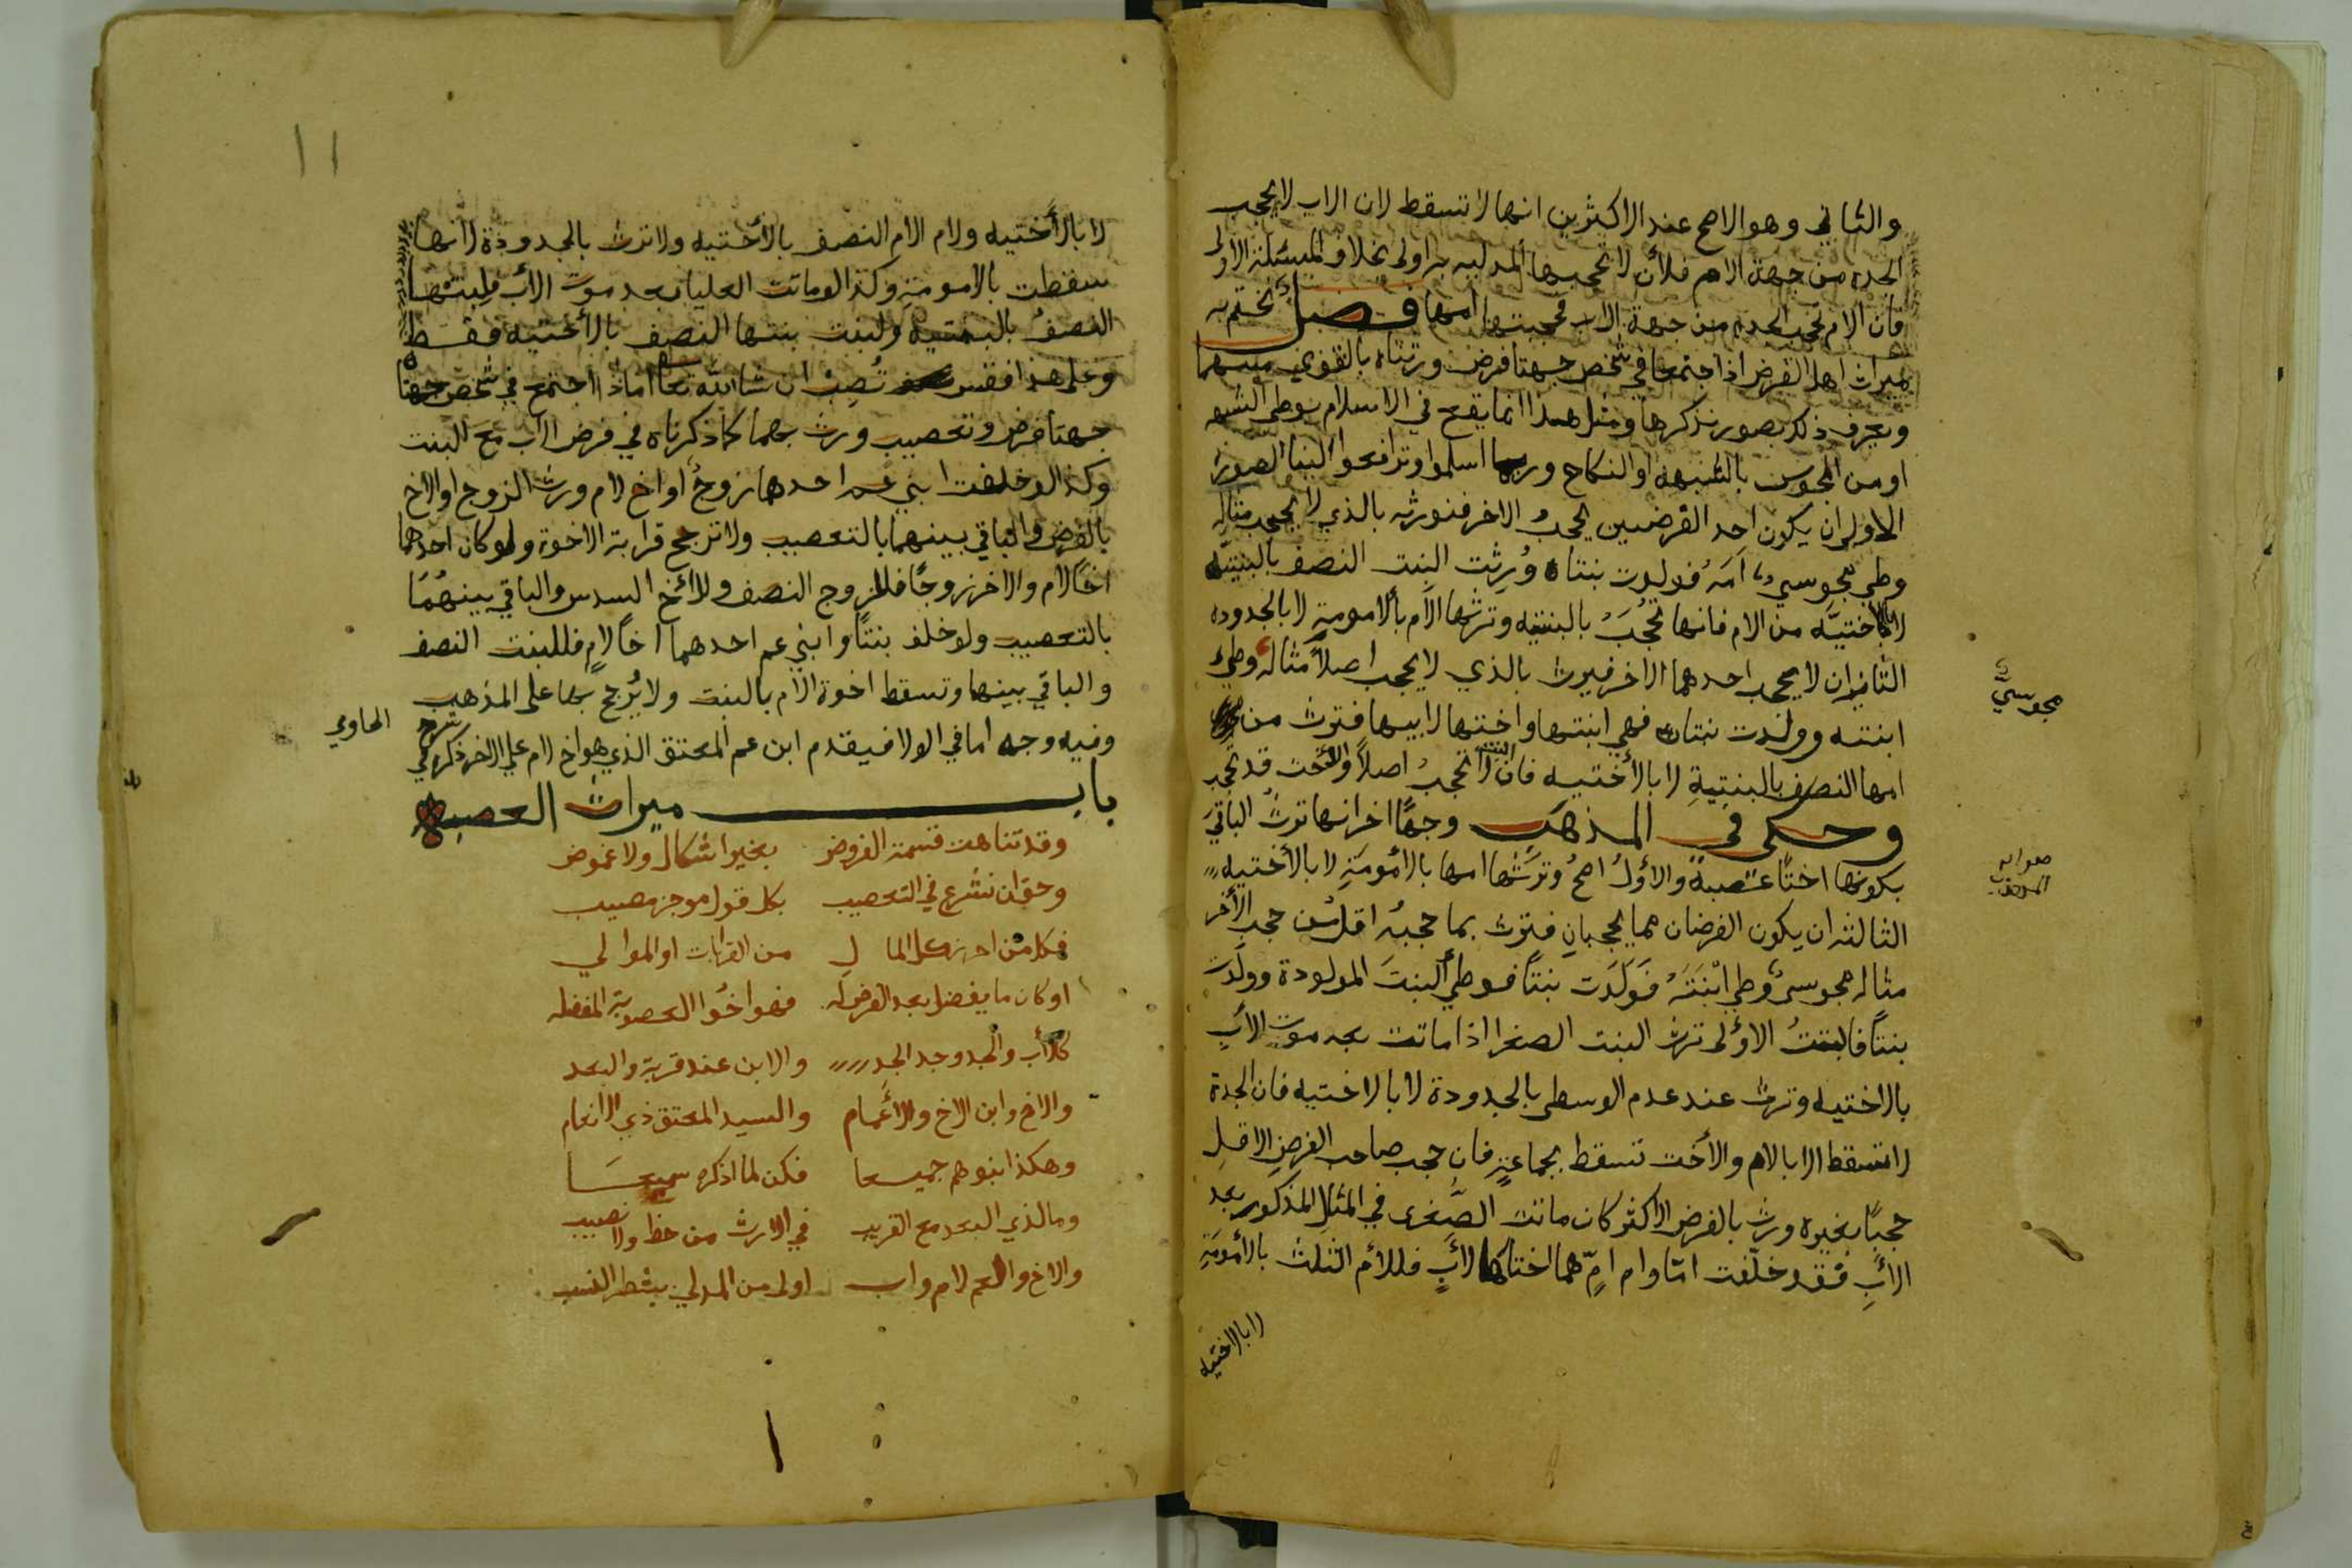 والثاني وهو الاصح عند الاكثرين انها لا تسقط لان الاب لا يحجب
الجدة من جهة الام فلأن لا تحجبها المدليه به اولى بخلاف المسئلة الاولى
فان الام تحجب الجدة من جهة الاب فحجبتها امها فصل نختم به
ميراث اهل الفرض اذا اجتمعا في شخص جهتا فرض ورثناه بالقوي منهما
ويعرف ذلك بصور نذكرها ومثل هذا انما يقع في الاسلام بوطى الشبهه
او من المجوس بالشبهة او النكاح وربما اسلموا وترافعوا الينا الصورة
الاولى ان يكون احد الفرضين يحجبُ الاخر فنورثه بالذي لا يحجب مثاله
وطى مجوسيٌ امَهُ فولدت بنتاً وُرِثت البنت النصف بالبنتيّه
لا بالأختيَّه من الام فانها تحجبُ بالبنتيه وترثها الأم بالامومةِ لا بالجدوده
الثاني ان لا يحجب احدهما الاخر فيرث بالذي لا يحجب اصلاً مثالهُ وطيء
مجوسيٌ
ابنته وولدت بنتاً فهي ابنتها واختها لابيها فترث من
امها النصف بالبنتيةِ لا بالأختيه فان البنت لا تحجبُ اصلاً والأخت قد تحجب
وحكى في المذهب وجهًا اخر انها ترثُ الباقي
صوابه المهذب
بكونها اختًا عصبةً والأولُ اصحُ وترثها امها بالأمومَةِ لا بالأختيه
الثالثه ان يكون الفرضان مما يحجبانِ فيرث بما حجبهُ اقل من حجب الأخر
مثاله مجوسيٌ وطي ابْنَتَهُ فَوَلَدَت بنتاً فوطي البنتَ المولودة وولدت
بنتاً فالبنتُ الاولى ترث البنت الصغرا اذا ماتت بعد موت الأبِ
بالاختيه وترث عند عدم الوسطى بالجدودة لا بالاختيه فان الجدة
لا تسقط الا بالام والأخت تسقط بجماعةٍ فان حجب صاحب الفرضِ الاقلِ
حجبًا بغيره ورث بالفرض الاكثر كان ماتت الصُغرى في المثال المذكور بعد
الأبِ فقد خلّفت امّا وام امٍّ هما اختاها لأبٍ فللأم الثلث بالأمومَةِ
لا بالاختيه
١١
لا بالأختيه ولام الام النصف بالأختيه ولا ترث بالجدودة لأنها
سقطت بالامومةِ وكذا لو ماتت العليا بعد موت الأب فلبنتها
النصفُ بالبنتيه ولبنت بنتها النصف بالأختيه فقط
وعلى هذا فقس تُصِبْ ان شا الله تعا اما اذا اجتمع في شخص
جهتا فرض وتعصيب ورث بهما كما ذكرناه في فرض الاب مع البنت
وكذا لو خلفت ابني عم احدهما زوجٌ او اخ لام ورث الزوج او الاخ
بالفرض والباقي بينهما بالتعصيب ولا ترجح قرابة الاخوة ولو كان احدهما
اخًا لام والاخر زوجًا فللزوج النصف وللأخ السدس والباقي بينهُمَا
بالتعصيب ولو خلف بنتًا وابني عم احدهما اخًا لامٍ فللبنت النصف
والباقي بينهما وتسقط اخوة الأم بالبنت ولا يُرجح بها على المذهب
وفيه وجه اما في الولا فيقدم ابن عم المعتق الذي هو اخ لام على الاخر ذكره في
شرح الحاوي
باب ميراث العصبه
وقد تناهت قسمة الفروض بغير اشكال ولا غموض
وحق ان نشرع في التعصيب بكل قول موجز مصيب
فكل من احرز كل المال من القرابات او الموالي
او كان ما يفضل بعد الفرض له فهو اخُو العصوبة المفضله
كالأب والجد وجد الجد والابن عند قربة والبعد
والاخ وابن الاخ والأعمام والسيد المعتق ذي الانعام
وهكذا بنوهم جميعا فكن لما اذكره سميعَا
وما لذي البعد مع القريب في الارث من حظ ولا نصيب
والاخ والعم لام واب اولى من المدلي بشطر النسب